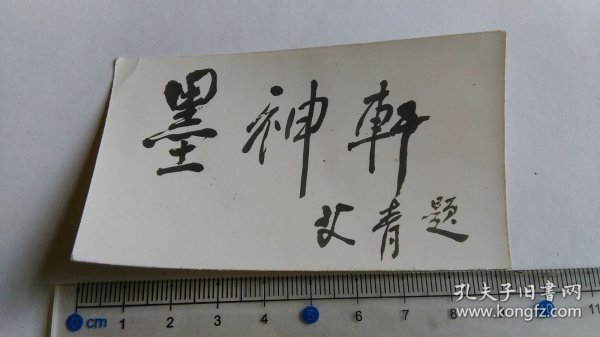 墨神軒
艾青題
cm 1 2 3 4 5 6 7 8 11
孔夫子旧书网
www.kongfz.com